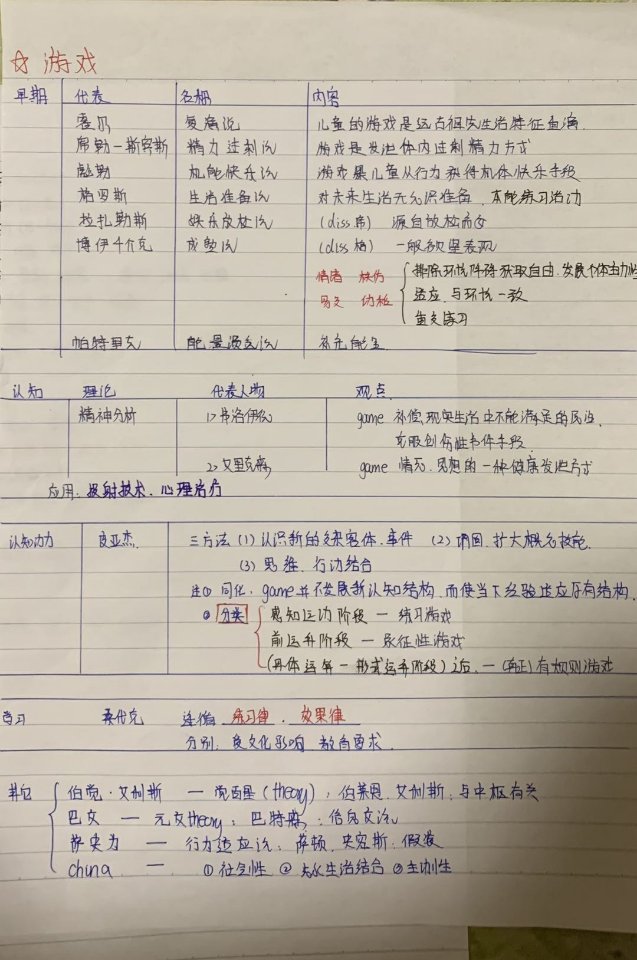 ☆ 游戏
早期 代表 名称 内容
霍尔 复演说 儿童的游戏是远古祖先生活特征重演
席勒—斯宾斯 精力过剩说 游戏是发泄体内过剩精力方式
彪勒 机能快乐说 游戏是儿童从行为获得机体快乐手段
格罗斯 生活准备说 对未来生活无意识准备、本能练习活动
拉扎勒斯 娱乐放松说 (diss席) 源自放松而女
博伊千介克 成熟说 (diss格) 一般欲望表现
排除环境障碍获取自由、发展个体主动性
适应、与环境一致
重复练习
帕特里克 能量 说 补充能量
认知 理论 代表人物 观点
精神分析 1> 弗洛伊德 game 补偿现实生活中不能满足的 、
克服创伤性事件手段
2> 艾里克森 game 情况、思想的一种健康发泄方式
应用: 投射技术、心理治疗
认知动力 皮亚杰 三方法 (1) 认识新的复杂客体、事件 (2) 巩固、扩大概念技能
(3) 思维、行动结合
注① 同化: game并不发展新认知结构, 而使当下经验适应原有结构.
② 分类 感知运动阶段 — 练习游戏
前运算阶段 — 象征性游戏
(具体运算—形式运算阶段) 之后 — (真正) 有规则游戏
学习 桑代克 遵循 练习律、效果律
分别: 受文化影响 教育要求
其它 伯莱·艾利斯 — 觉醒 (theory); 伯莱恩、艾利斯: 与中枢有关
巴女 — 元女theory; 巴特森: 信息交流
萨 为 — 行为适应说; 萨顿、史密斯: 假装
china — ① 社会性 ② 与生活结合 ③ 主动性